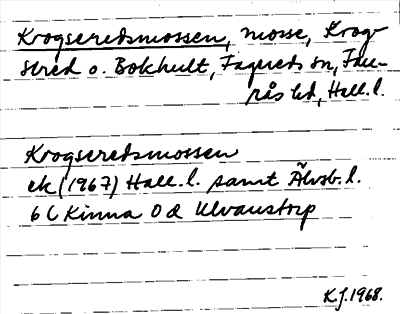 Krogseredsmossen, mosse, Krog-
sered o. Bokhult, Fagereds sn, Fau-
rås hd, Hall. l.
Krogseredsmossen
ek (1967) Hall. l. samt Älvsb. l.
6 C Kinna 0 d Ulvanstorp
K J. 1968.